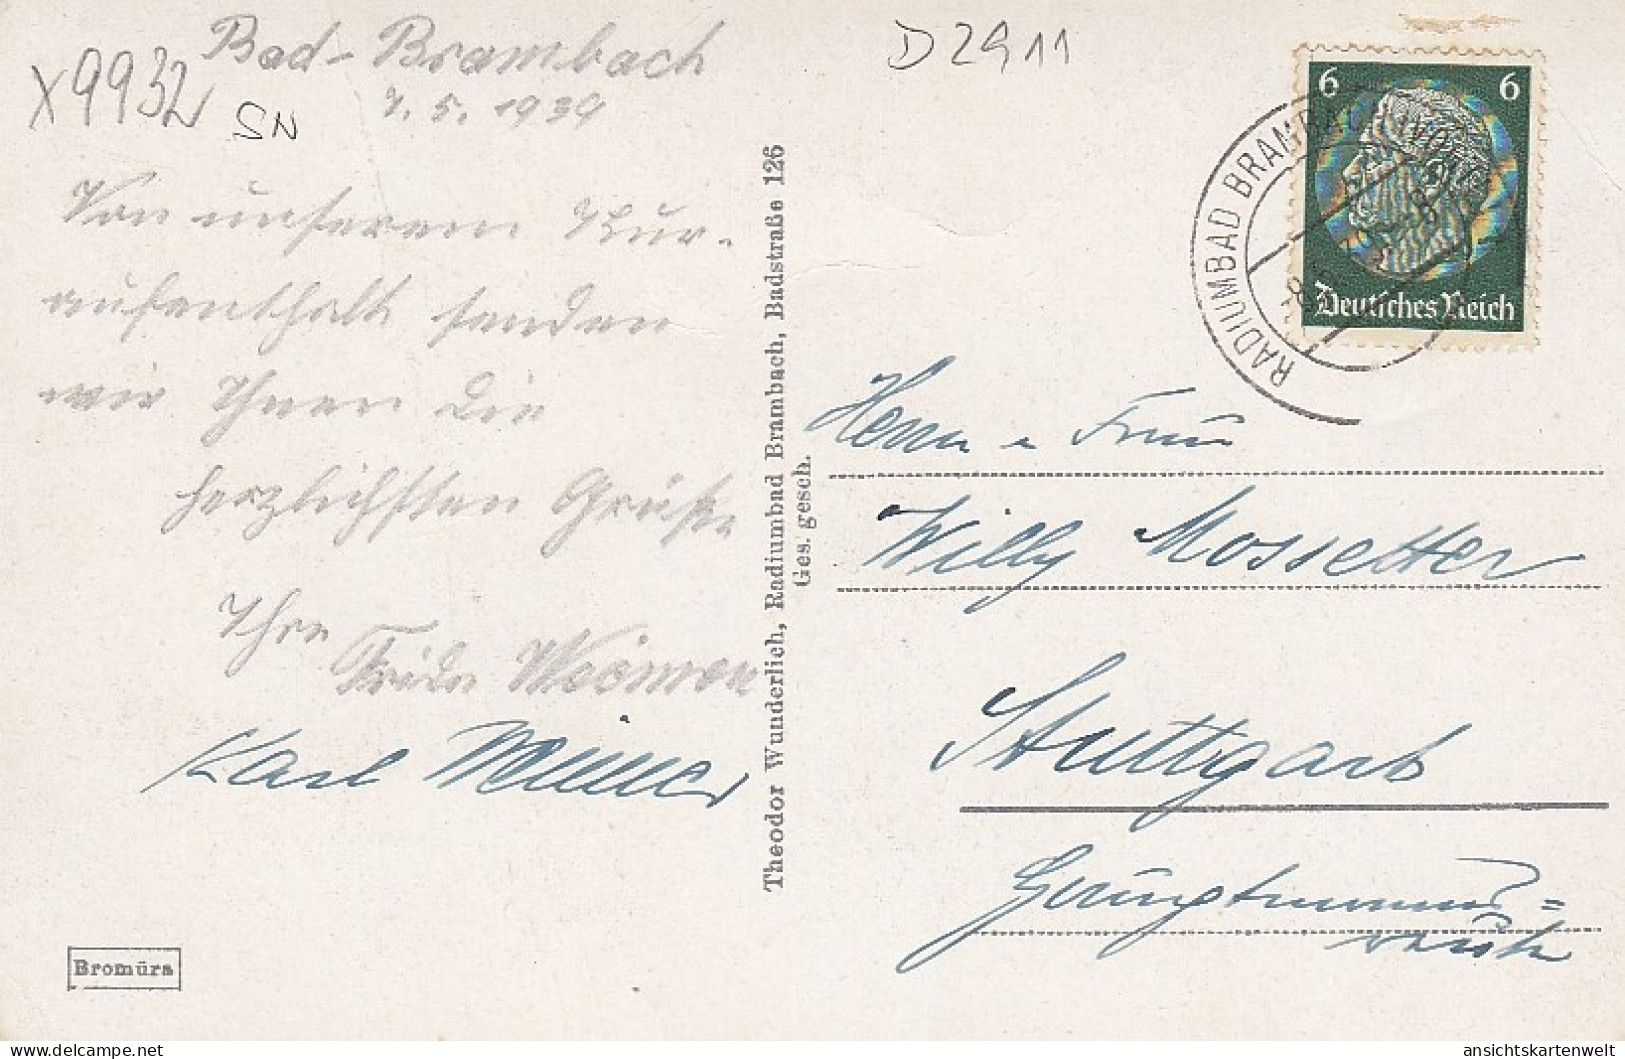 X9932
SN
Bad-Brambach
7. 5. 1939
D2911
Von unserem Kur-
aufenthalt senden
wir Ihnen die
herzlichsten Grüße
Ihre
Frida
Karl
Theodor Wunderlich, Radiumbad Brambach, Badstraße 126
Ges. gesch.
Bromüra
6 6
Deutsches Reich
RADIUMBAD BRAMBACH
Herrn u Frau
Willy Mossetter
Stuttgart
ansichtskartenwelt